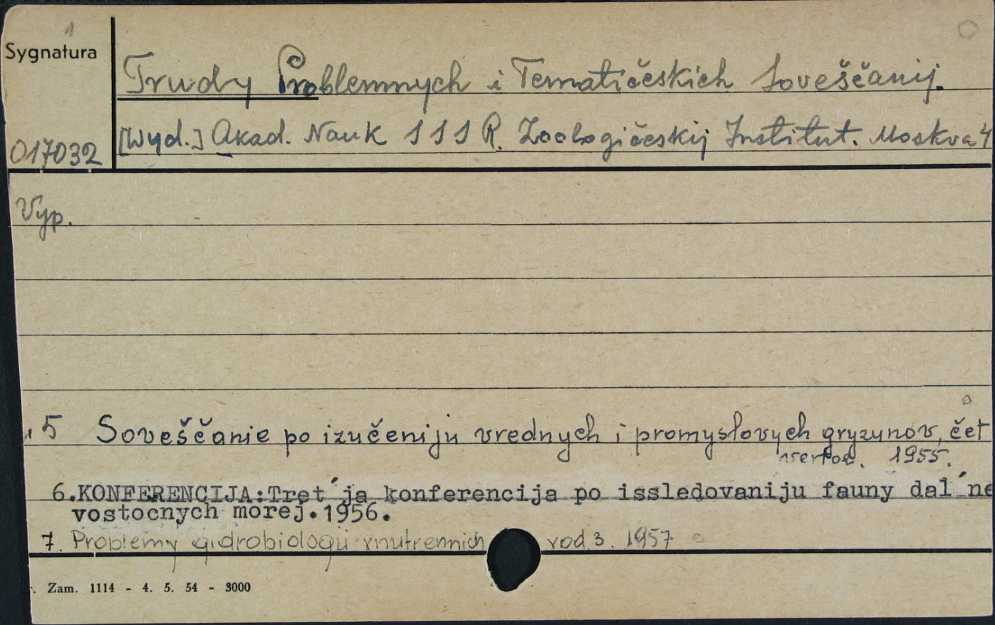 Sygnatura
1
Trudy Problemnych i Tematičeskich Soveščanij.
[Wyd.] Akad. Nauk SSSR. Zoologičeskij Institut. Moskva
017032
Vyp.
5 Soveščanie po izučeniju vrednych i promysłovych gryzunov, čet
1955.
6. KONFERENCIJA: Tret´ja konferencija po issledovaniju fauny dal´ne
vostocnych morej. 1956.
7. Problemy gidrobiologii vnutrennich vod 3. 1957
Zam. 1114 - 4. 5. 54 - 3000